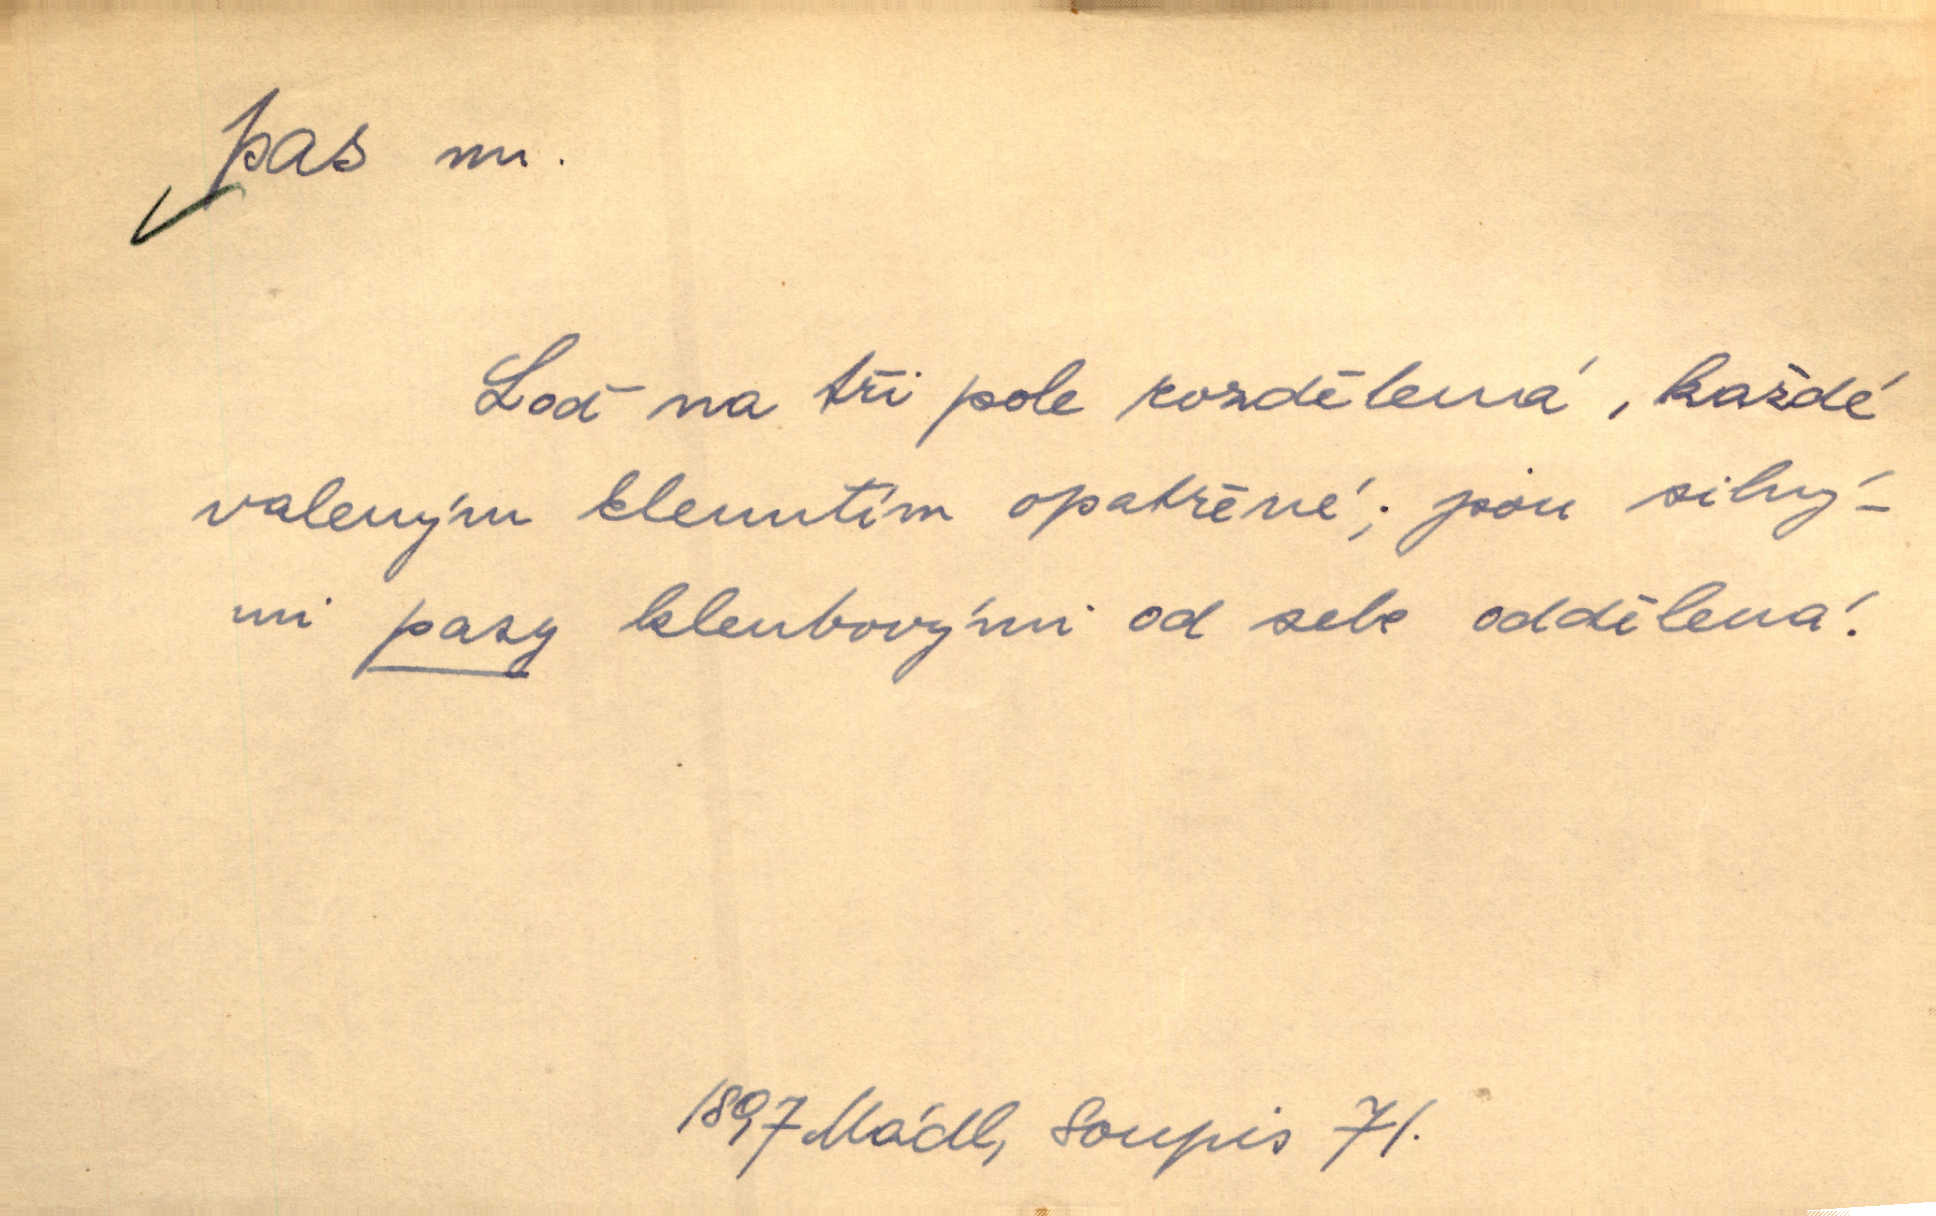 pas m.
Loď na tři pole rozdělená, každé
valeným klenutím opatřené; jsou silný-
mi pasy klenbovými od sebe oddělená.
1897 Mádl, Soupis 71.